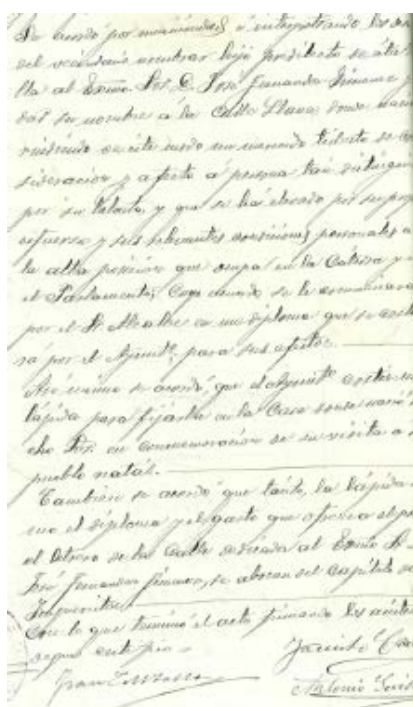 Se acordó por unanimidad é interpretando los de
del vecindario nombrar hijo predilecto de ésta
lla al Exmo Sor D. José Fernando Jimenez y
dar su nombre á la Calle Llana, donde naci
rindiendo en este modo un merecido tributo de co
sideracion y afecto á persona tan distingui
por su talento, y que se há elevado por su prop
esfuerzo y sus relevantes condiciones personales a
la alta posicion que ocupa en la Catedra y e
el Parlamento; Cuyo acuerdo se le comunicara
por el Sr Alcalde en un diploma que se coste
rá por el Ayuntº para sus efectos.
Asi mismo se acordó, que el Ayuntº costee una
lapida para fijarla en la Casa donde nació
cho Sor en conmemoracion de su visita a
pueblo natal.
Tambien se acordó que tanto, la lápida
mo el diploma y el gasto que ofrezca al p
el letrero de la Calle dedicada al Exmo S
José Fernando Jimenez, se abonen del Capítulo de
Imprevistos.
Con lo que terminó el acto firmando los
segun
Jacinto
Antonio